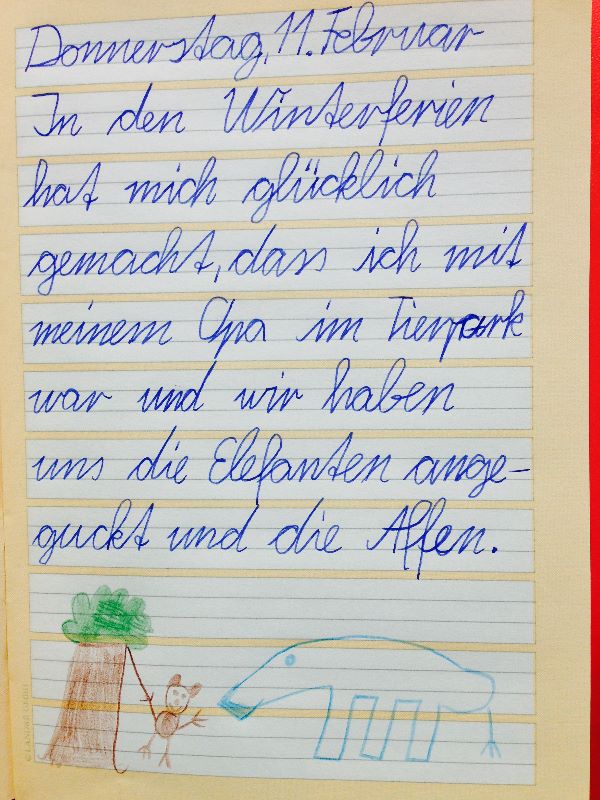 Donnerstag, 11. Februar
In den Winterferien
hat mich glücklich
gemacht, dass ich mit
meinem Opa im Tierpark
war und wir haben
uns die Elefanten ange-
guckt und die Affen.